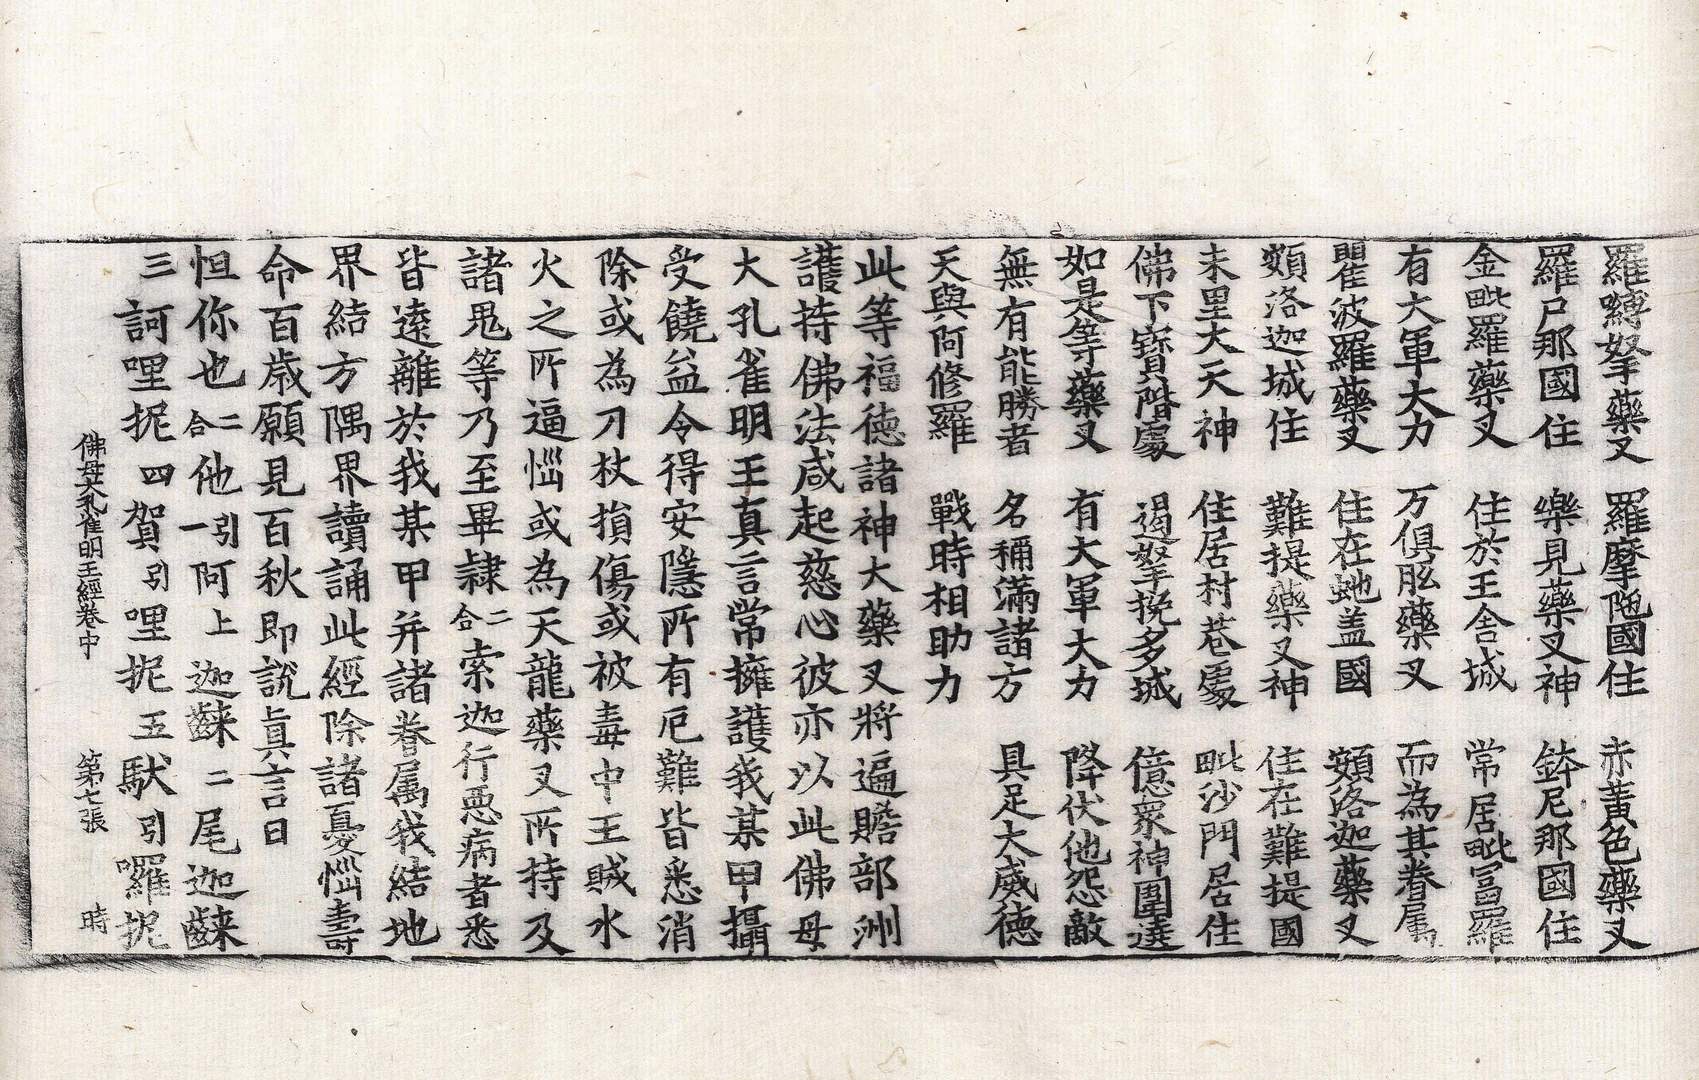 羅嚩拏藥叉　羅摩陁國住　赤黃色藥叉
羅尸那國住　樂見藥叉神　鉢尼那國住
金毗羅藥叉　住於王舍城　常居毗富羅
有大軍大力　万俱胝藥叉　而為其眷属
瞿波羅藥叉　住在虵盖國　頞洛迦藥叉
頞洛迦城住　難提藥叉神　住在難提國
末里大天神　住居村巷處　毗沙門居住
佛下寶階處　遏拏挽多城　億衆神圍遶
如是等藥叉　有大軍大力　降伏他怨敵
無有能勝者　名稱滿諸方　具足大威德
天與阿修羅　戰時相助力
此等福德諸神大藥叉將遍贍部洲
護持佛法咸起慈心彼亦以此佛母
大孔雀明王真言常擁護我某甲攝
受饒益令得安隱所有厄難皆悉消
除或為刀杖損傷或被毒中王賊水
火之所逼惱或為天龍藥叉所持及
諸鬼等乃至畢隸二合索迦行惡病者悉
皆遠離於我某甲并諸眷属我結地
界結方隅界讀誦此經除諸憂惱壽
命百歲願見百秋即說真言曰
怛你也二合他引一阿上迦䶚二尾迦䶚
三訶哩抳四賀引哩抳五馱引囉抳
佛母大孔雀明王經卷中　第七張　時